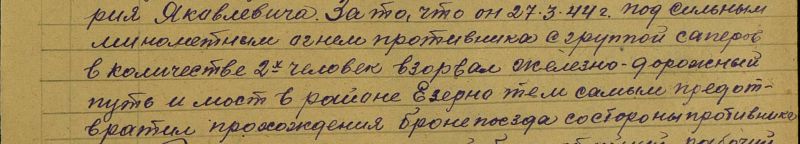 рия Яковлевича. За то, что он 27.3.44 г. под сильным
минометным огнем противника с группой саперов
в количестве 2х человек взорвал железно-дорожный
путь и мост в районе Езерно тем самым предот-
вратил прохождения бронепоезда со стороны противника
рабочий